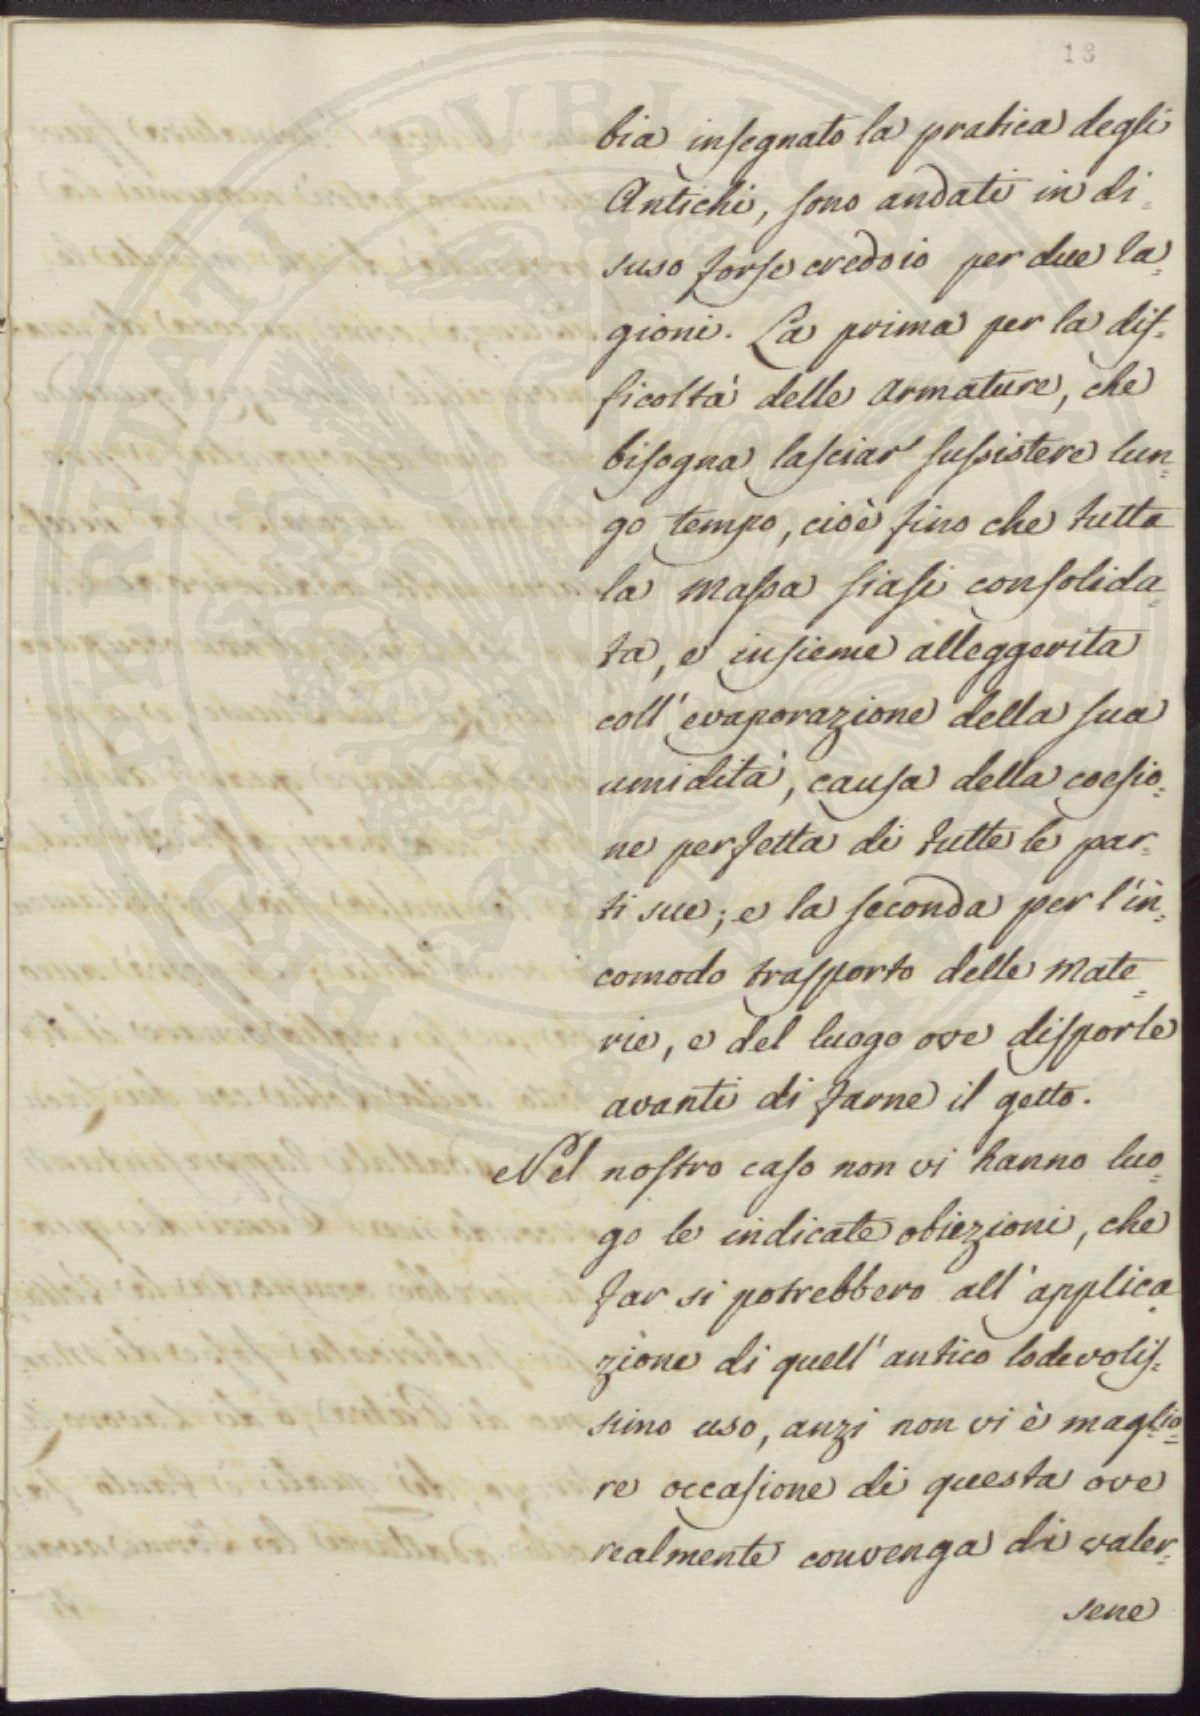 18
bia insegnato la pratica degli
Antichi, sono andati in di-
suso forse credo io per due ra=
gioni. La prima per la dif=
ficoltà delle armature, che
bisogna lasciar sussistere lun=
go tempo, cioè fino che tutta
la massa siasi consolida=
ta, e insieme alleggerita
coll'evaporazione della sua
umidità, causa della coesio=
ne perfetta di tutte le par=
ti sue; e la seconda per l'in=
comodo trasporto delle mate=
rie, e del luogo ove disporle
avanti di farne il getto.
Nel nostro caso non vi hanno luo=
go le indicate obiezioni, che
far si potrebbero all'applica
zione di quell'antico lodevolis=
simo uso, anzi non vi è maglio=
re occasione di questa ove
realmente convenga di valer=
sene